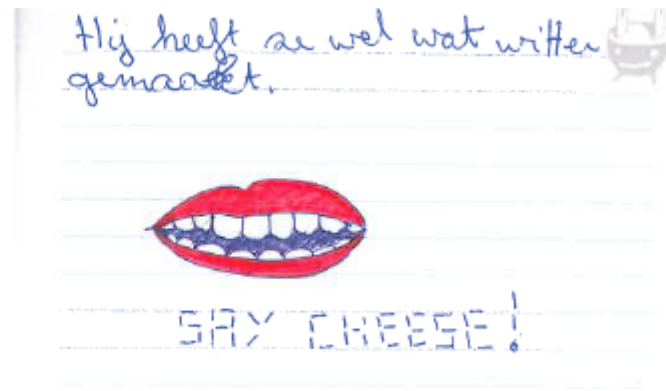 Hij heeft ze wel wat witter
gemaakt.
SAY CHEESE!